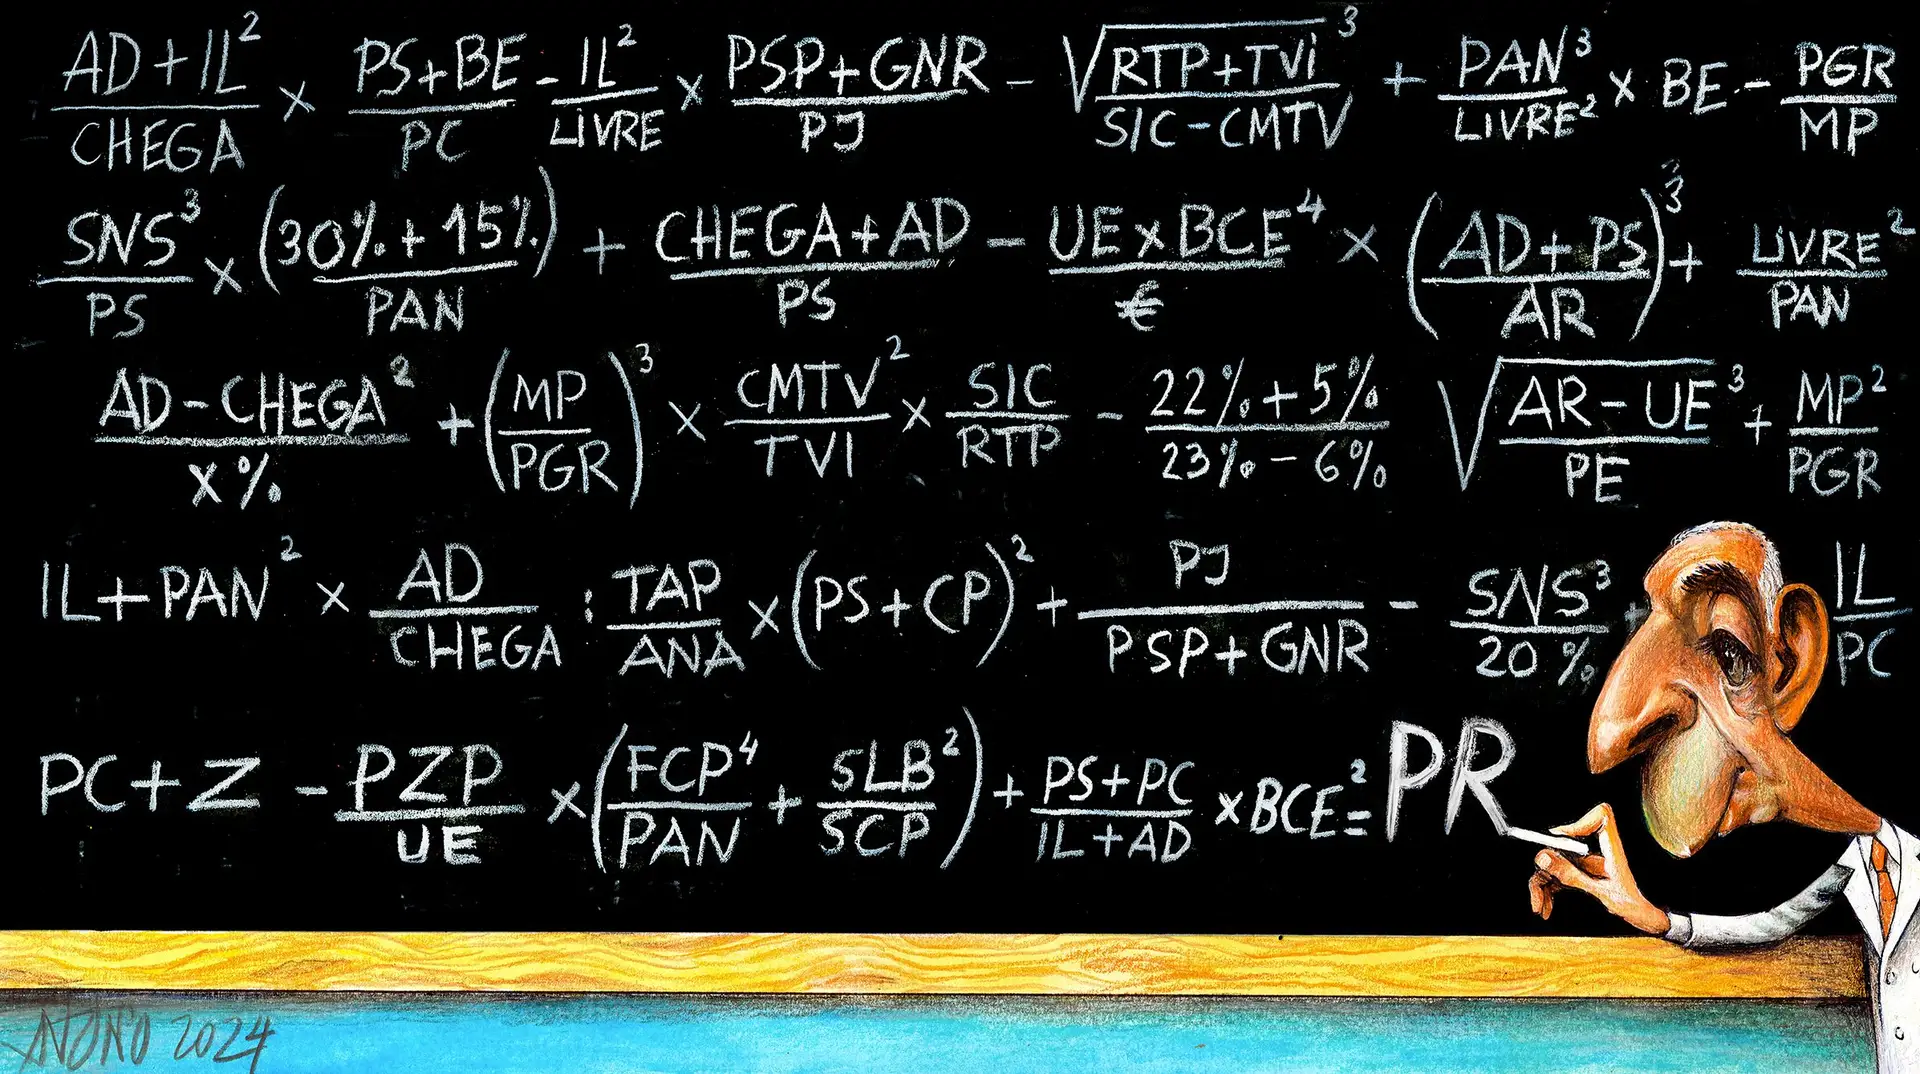 (AD + IL²)/CHEGA × (PS + BE)/PC - IL²/LIVRE × (PSP + GNR)/PJ - √(RTP + TVi)/(SIC - CMTV)³ + PAN³/LIVRE² × BE - PGR/MP
SNS³/PS × ((30% + 15%)/PAN) + (CHEGA + AD)/PS - (UE × BCE⁴)/€ × ((AD + PS)/AR)³ + LIVRE²/PAN
(AD - CHEGA²)/X% + (MP/PGR)³ × CMTV²/TVI × SIC/RTP - (22% + 5%)/(23% - 6%) √(AR - UE)/PE³ + MP²/PGR
IL + PAN² × AD/CHEGA : TAP/ANA × (PS + CP)² + PJ/(PSP + GNR) - SNS³/20% + IL/PC
PC + Z - PZP/UE × (FCP⁴/PAN + SLB²/SCP) + (PS + PC)/(IL + AD) × BCE² = PR
2024